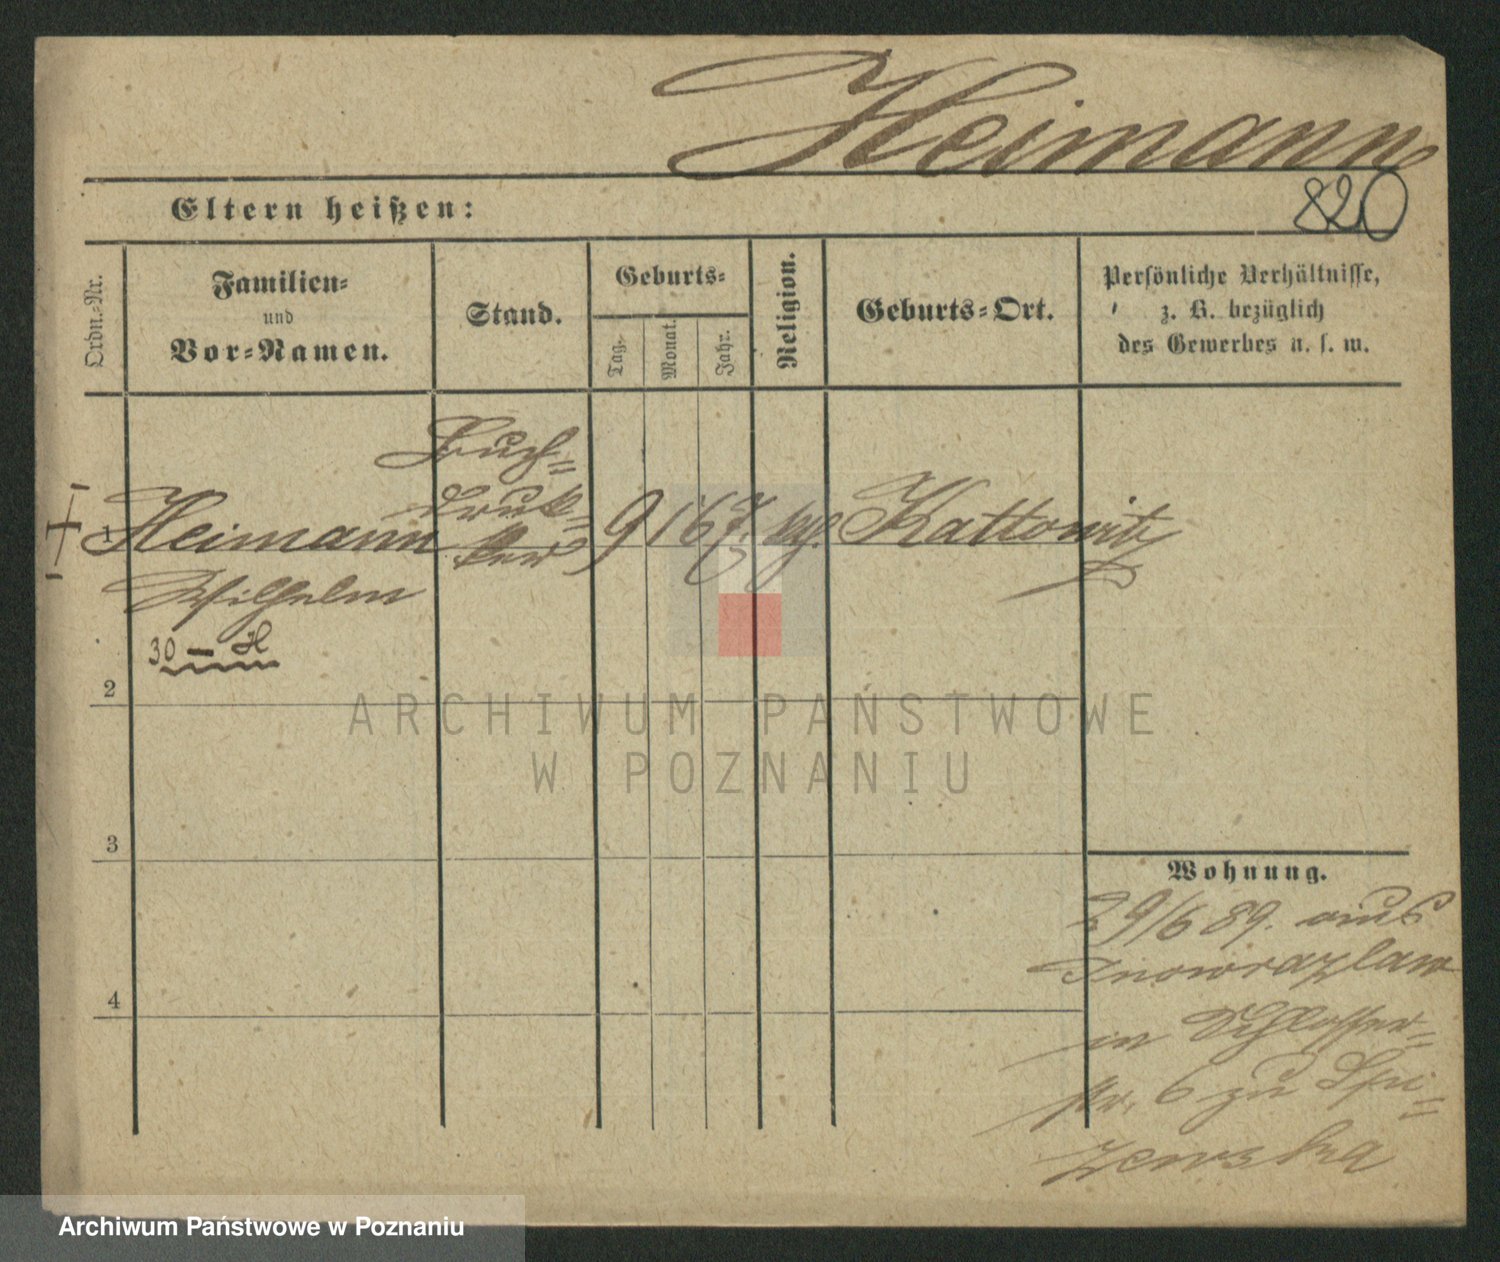 Heimann
820
Eltern heißen:
Ordn.-Nr.
Familien-
und
Vor-Namen.
Stand.
Geburts-
Tag.
Monat.
Jahr.
Religion.
Geburts-Ort.
Persönliche Verhältnisse,
z. B. bezüglich
des Gewerbes u. s. w.
1
Heimann
Wilhelm
30 — H
Buch-
druk-
ker
9 1 67. kg. Kattowitz
2
3
4
Wohnung.
29/6 89. aus
Inowrazlaw
in Schlosser-
str. 6 zu Spi-
zewska
ARCHIWUM PAŃSTWOWE
W POZNANIU
Archiwum Państwowe w Poznaniu